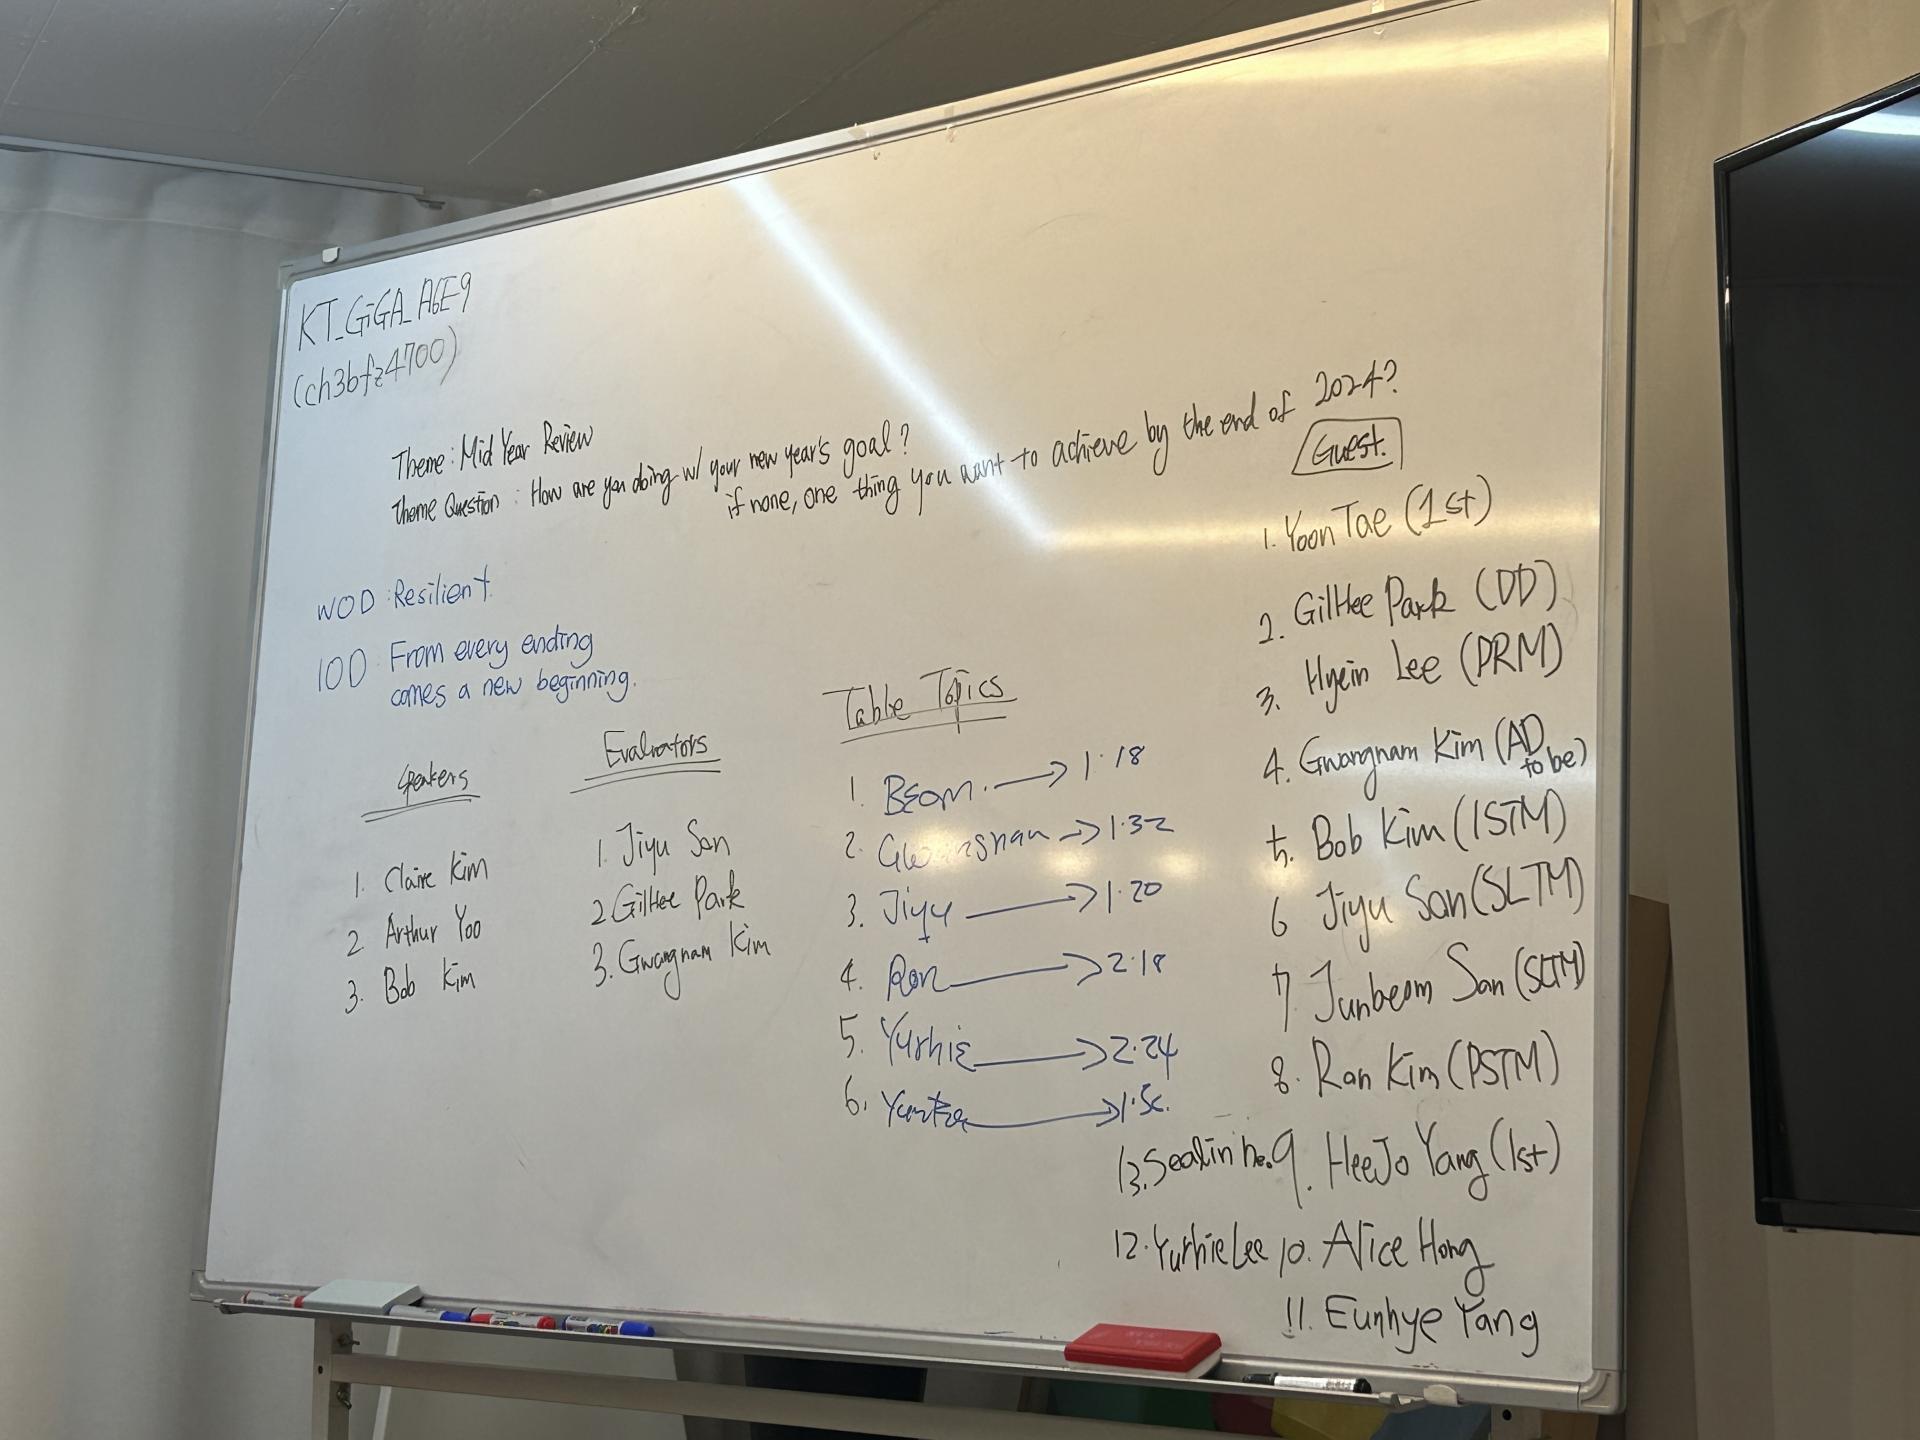 KT_GiGA_A6E9
(ch3bfz4700)
Theme: Mid Year Review
Theme Question: How are you doing w/ your new year's goal?
if none, one thing you want to achieve by the end of 2024?
WOD: Resilient.
IOD: From every ending
comes a new beginning.
Speakers
1. Claire Kim
2 Arthur Yoo
3. Bob Kim
Evaluators
1. Jiyu Son
2 GilHee Park
3. Gwangnam Kim
Table Topics
1. Beom. → 1.18
2. → 1.32
3. Jiyu → 1.20
4. Ran → 2.18
5. Yurhie → 2.24
6.
Guest.
1. Yoon Tae (1st)
2. GilHee Park (DD)
3. Hyein Lee (PRM)
4. Gwangnam Kim (AD to be)
5. Bob Kim (ISTM)
6 Jiyu Son (SLTM)
7 Junbeom Son (SLTM)
8. Ran Kim (PSTM)
9. HeeJo Yang (1st)
10. Alice Hong
11. Eunhye Yang
12. Yurhie Lee
13.